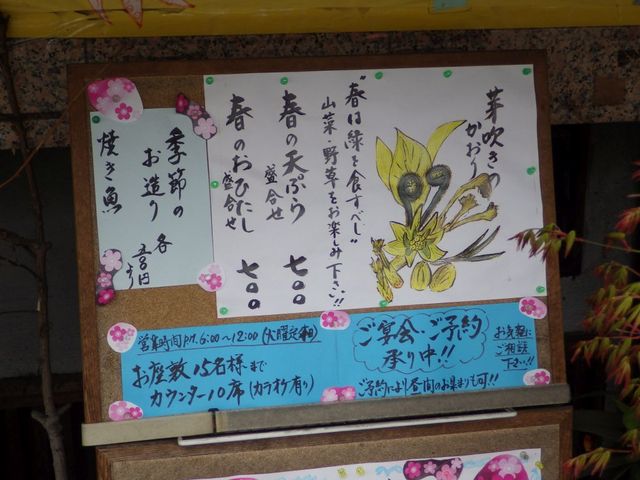 芽吹きの
かおり
"春は緑を食すべし"
山菜・野草をお楽しみ下さい!!
春の天ぷら
盛合せ
七〇〇
春のおひたし
盛合せ
七〇〇
季節の
お造り
各
五〇〇円
より
焼き魚
営業時間 P.M. 6:00〜12:00 (火曜定休)
お座敷15名様まで
カウンター10席 (カラオケ有り)
ご宴会・ご予約
承り中!!
ご予約により昼間のお集まりも可!!
お気軽に
ご相談
下さい!!